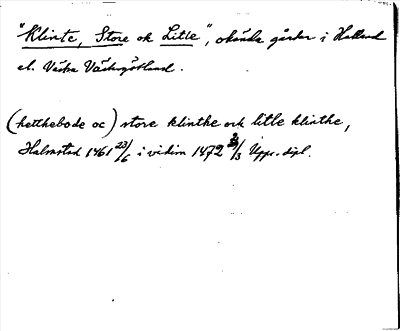 "Klinte, Store ok Litle", okända gårdar i Halland
el. Västra Västergötland.
(hetthebode oc) store klinthe och litle klinthe,
Halmstad 1461 23/6 i vidim 1472 /3 Upps. dipl.